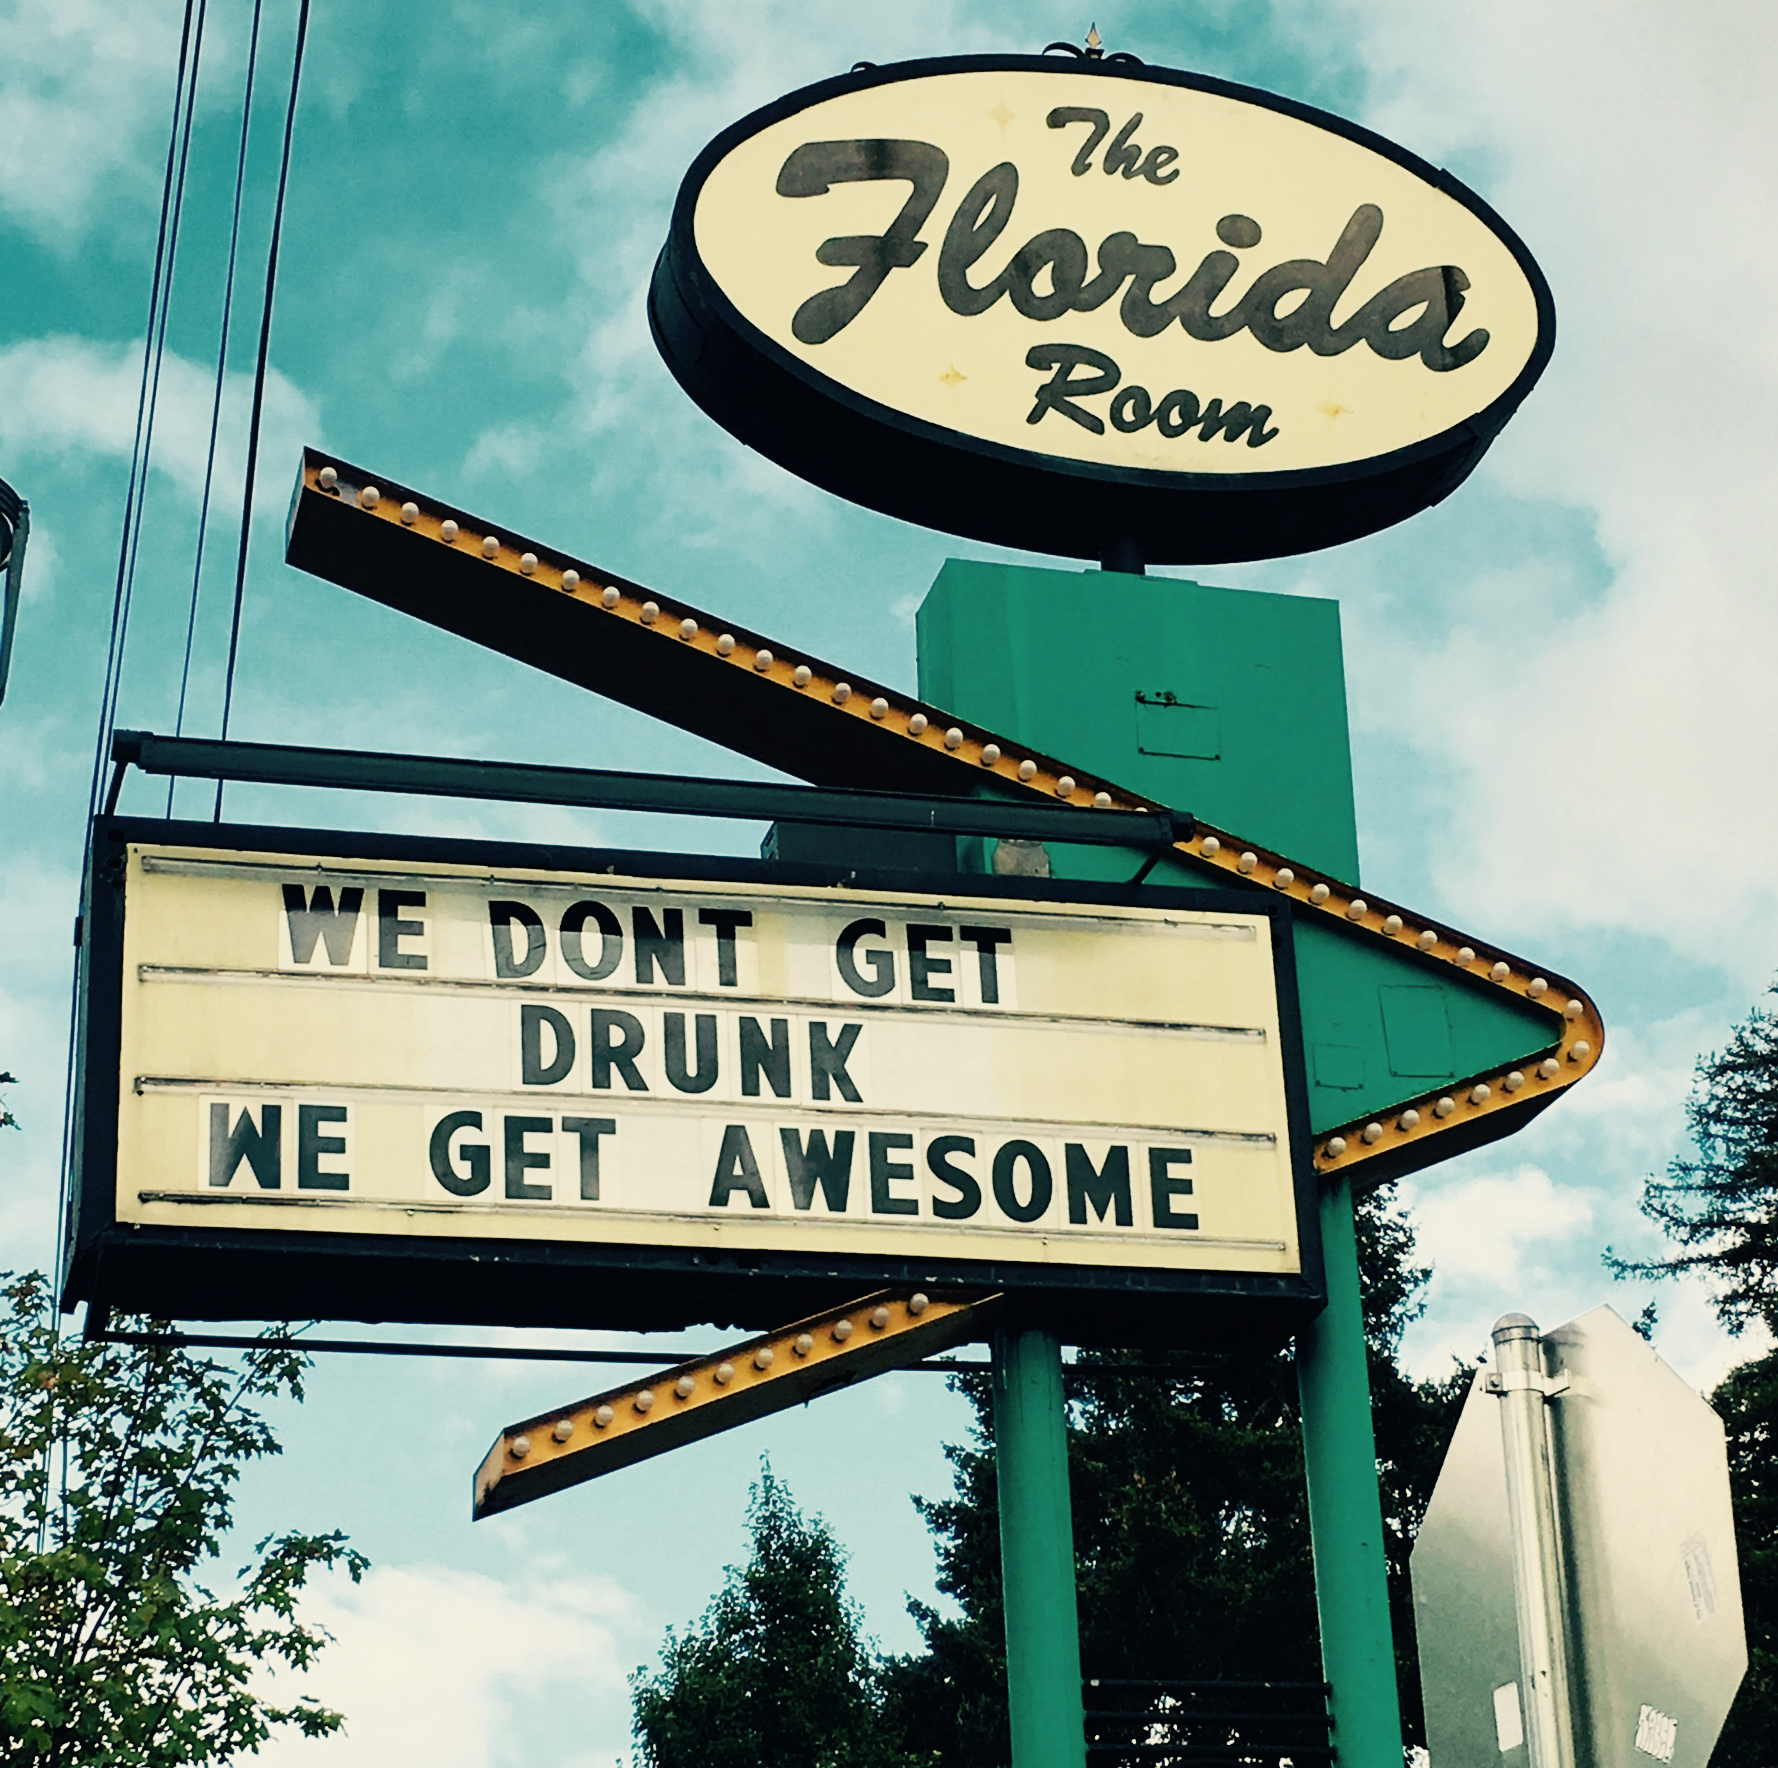 The
Florida
Room
WE DONT GET
DRUNK
WE GET AWESOME